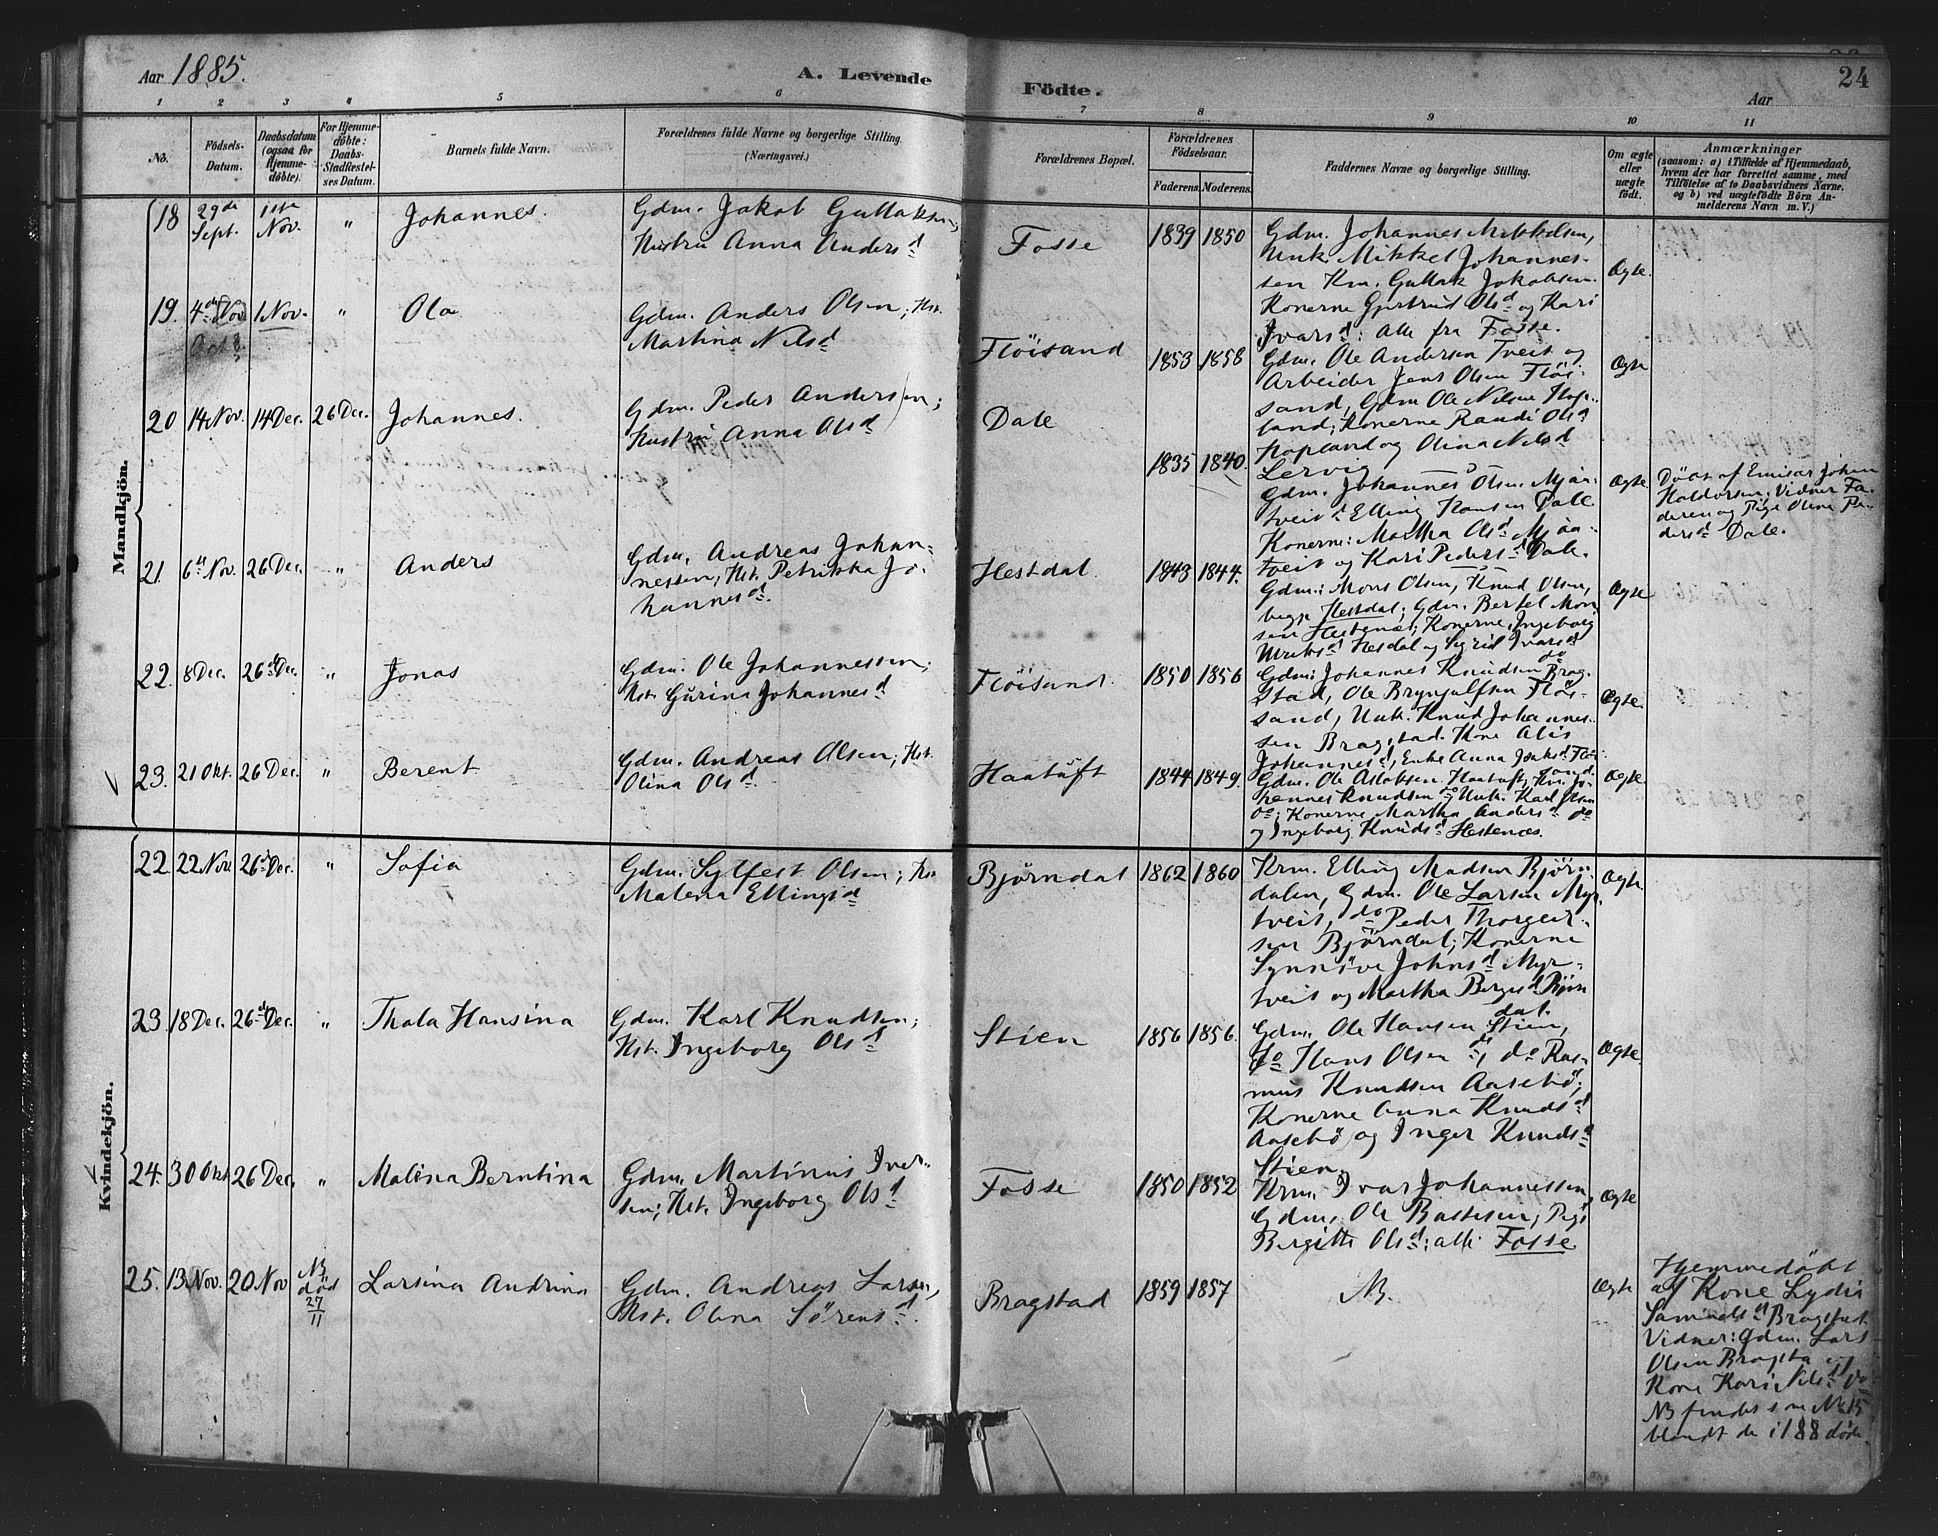 Aar 1885.
A. Levende
Födte.
24
Aar
1 2 3 4 5 6 7 8 9 10 11
No.
Födsels-
Datum.
Daabsdatum
(ogsaa for
Hjemme-
döbte).
For Hjemme-
döbte:
Daabs-
Stadfæstel-
ses Datum.
Barnets fulde Navn.
Forældrenes fulde Navne og borgerlige Stilling.
(Næringsvei.)
Forældrenes Bopæl.
Forældrenes
Födselsaar.
Faderens. Moderens.
Faddernes Navne og borgerlige Stilling.
Om ægte
eller
uægte
födt.
Anmærkninger
(saasom: a) i Tilfælde af Hjemmedaab,
hvem der har forrettet samme, med
Tilföielse af to Daabsvidners Navne,
og b) ved uægtefödte Börn An-
melderens Navn m. V.)
Mandkjön.
18 29de Sept. 1ste Nov. " Johannes.
Gdm. Jakob Gullaksen;
Hustru Anna Andersd
Fosse 1839 1850
Gdm. Johannes Mikkelsen,
Unk. Mikkel Johannes-
sen Km. Gullak Jakobsen
Konerne Gjertrud Olsd og Kari
Ivarsd: alle fra Fosse.
Ægte.
19. 4de Nov 1 Nov. " Ola
Gdm. Anders Olsen; Hst.
Martina Nilsd
Flöisand 1853 1858
Gdm. Ole Andersen Tveit og
Arbeider Jens Olsen Flöi-
sand, Gdm Ole Nilsen Hop-
land; Konerne Randi Olsd
Hopland og Olina Nilsd
Lervig
Ægte
20 14 Nov. 14 Dec. 26 Dec. Johannes.
Gdm. Peder Andersen;
Hustru Anna Olsd
Dale 1835 1840.
Gdm. Johannes Olsen Mjaa-
tveit Elling Hansen Dale
Konerne: Martha Olsd Mjaa-
tveit og Kari Pedersd Dale.
Ægte
Döbt af Emisær Johan
Haldorsen; Vidner Fa-
deren og Pige Oline Pe-
dersd Dale.
21. 6te Nov. 26 Dec. " Anders
Gdm. Andreas Johan-
nessen; Hst. Petrikka Jo-
hannesd.
Hestdal 1843 1844.
Gdm: Mons Olsen, Knud Olsen,
begge Hestdal; Gdm. Bertel Mon
sen Hestenæs; Konerne, Ingeborg
Hesdal og Sigrid Ivarsd
do
Ægte
22. 8 Dec. 26de Dec. " Jonas
Gdm. Ole Johannessen;
Hst. Gurina Johannesd
Flöisand 1850 1856
Gdm: Johannes Knudsen Brag-
stad, Ole Brynjulfsen Flöi-
sand, Unk. Knud Johannes-
sen Bragstad. Kone Alis
Johannesd, Enke Anna Flöi-
sand.
Ægte.
23. 21 Okt. 26 Dec. " Berent
Gdm. Andreas Olsen; Hst.
Olina Olsd.
Haatuft 1844 1849.
Gdm. Ole Aslaksen Haatuft, Km. Jo-
hannes Knudsen do Unk. Karl Olsen
do; Konerne Martha Andersd do
og Ingeborg Knudsd Hestenæs.
Ægte
Kvindekjön.
22. 22 Nov. 26de Dec. " Sofia
Gdm. Sylfest Olsen; Hst
Malena Ellingsd
Björndal 1862 1860
Krm. Elling Madsen Björn-
dalen, Gdm. Ole Larsen Myr
tveit, do Peder Thorgeir-
sen Björndal; Konerne
Synnöve Johnsd Myr-
tveit og Martha Bergesd Björn
dal.
Ægte
23. 18 Dec. 26de Dec. " Thala Hansina
Gdm. Karl Knudsen;
Hst. Ingeborg Olsd
Stien 1856 1856.
Gdm. Ole Hansen Stien,
do Hans Olsen do, do Ras-
mus Knudsen Aasebö;
Konerne Anna Knudsd
Aasebö og Inger Knudsd
Stien.
Ægte.
24. 30 Okt 26 Dec. " Malena Berntina
Gdm. Martinus Iver-
sen; Hst. Ingeborg Olsd
Fosse 1850 1852
Krm. Ivar Johannessen,
Gdm, Ole Bastesen; Pige
Bergitte Olsd; alle Fosse
Ægte
25. 13 Nov. 20 Nov NB död 27/11 Larsina Andrina
Gdm. Andreas Larsen,
Hst. Olina Sörensd.
Bragstad 1859 1857 NB. Ægte
Hjemmedöbt
af Kone Lydia
Samuelsd Bragstad
Vidner: Gdm. Lars
Olsen Bragsta og
Kone Kari Nilsd do
NB findes som No 15
blandt de i 188 döde.